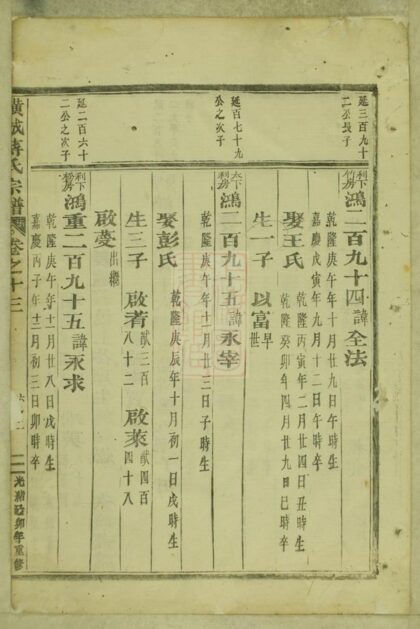 延三百九十
二公長子
利下竹房
鴻二百九十四諱全法
乾隆庚午年十月廿九日午時生
嘉慶戊寅年九月十二日午時卒
娶王氏
乾隆丙寅年二月廿四日丑時生
乾隆癸卯年四月廿九日巳時卒
生一子 以富早世
延百七十九
公之次子
鴻二百九十五諱永宰
乾隆庚午年十一月廿三日子時生
娶彭氏
乾隆庚辰年十月初一日戌時生
生三子 啟若獻三百八十二 啟萊獻四百四十八
啟菱出繼
延二百六十
二公之次子
利下
鴻重二百九十五諱永求
乾隆庚午年十一月廿八日戌時生
嘉慶丙子年十二月初三日卯時卒
橫城蔣氏宗譜 卷之十三
光緒己卯年重修